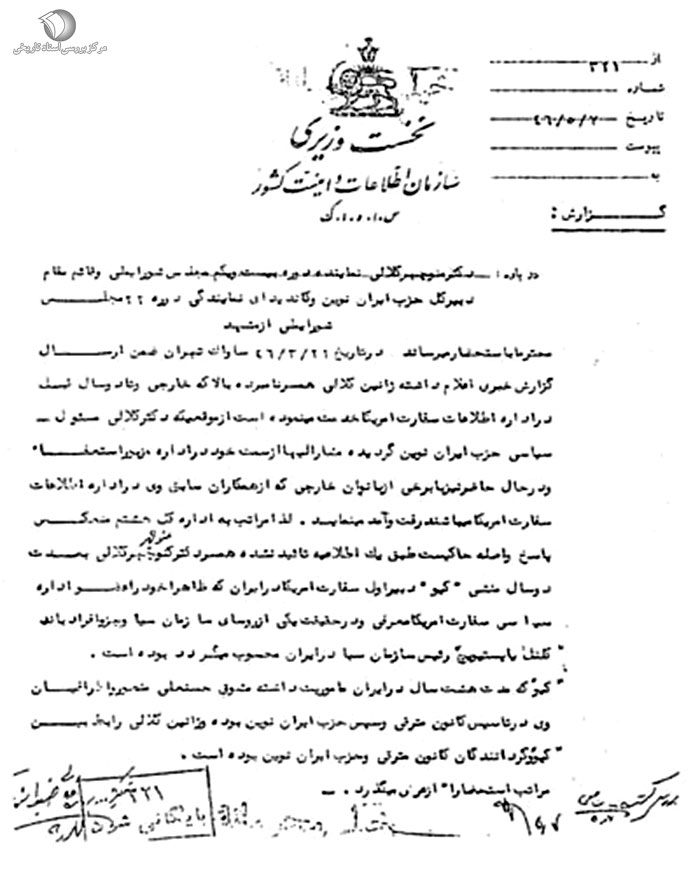 مرکز بررسی اسناد تاریخی
از ۳۲۱
شماره
تاریخ ۴۶/۵/۷
پیوست
به
نخست وزیری
سازمان اطلاعات و امنیت کشور
س.ا.و.ا.ک
گزارش :
درباره : دکتر منوچهر کلالی نماینده دوره بیست ویکم مجلس شورایملی وقائم مقام
دبیرکل حزب ایران نوین وکاندیدای نمایندگی دوره ۲۲ مجلس
شورایملی ازمشهد
محترما باستحضارمیرساند درتاریخ ۴۶/۳/۲۱ ساواک تهران ضمن ارسال
گزارش خبری اعلام داشته ژانین کلالی همسرنامبرده بالاکه خارجی وتادوسال قبل
دراداره اطلاعات سفارت امریکاخدمت مینموده است ازموقعیکه دکترکلالی مسئول
سیاسی حزب ایران نوین گردیده مشارالیها ازسمت خوددراداره مزبوراستعفا
ودرحال حاضرنیزبابرخی ازبانوان خارجی که ازهمکاران سابق وی دراداره اطلاعات
سفارت امریکامیباشندرفت وآمد مینماید . لذا مراتب به اداره کل هشتم منعکس
پاسخ واصله حاکیست طبق یك اطلاعیه تائید نشده همسردکترمنوچهرکلالی بمدت
دوسال منشی "کیو" دبیراول سفارت امریکادرایران که ظاهراخودراعضو اداره
سیاسی سفارت امریکامعرفی ودرحقیقت یکی ازروسای سازمان سیا وجزوافرادباند
رئیس سازمان سیا درایران محسوب میگردد بوده است .
"کیو" که مدت هشت سال درایران ماموریت داشته مشوق حسنعلی منصورواطرافیان
وی درتاسیس کانون مترقی وسپس حزب ایران نوین بوده وژانین کلالی رابط بین
"کیو" وگردانندگان کانون مترقی وحزب ایران نوین بوده است .
مراتب استحضارا" ازعرض میگذرد .
۳۲۱
بایگانی شود